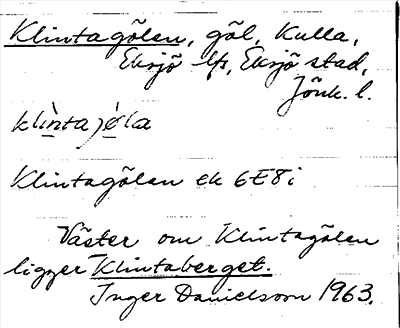 Klintagölen, göl, Kulla,
Eksjö lfs, Eksjö stad,
Jönk. l.
klìntajö́la
Klintagölen ek 6E8i
Väster om Klintagölen
ligger Klintaberget.
Inger Danielsson 1963.